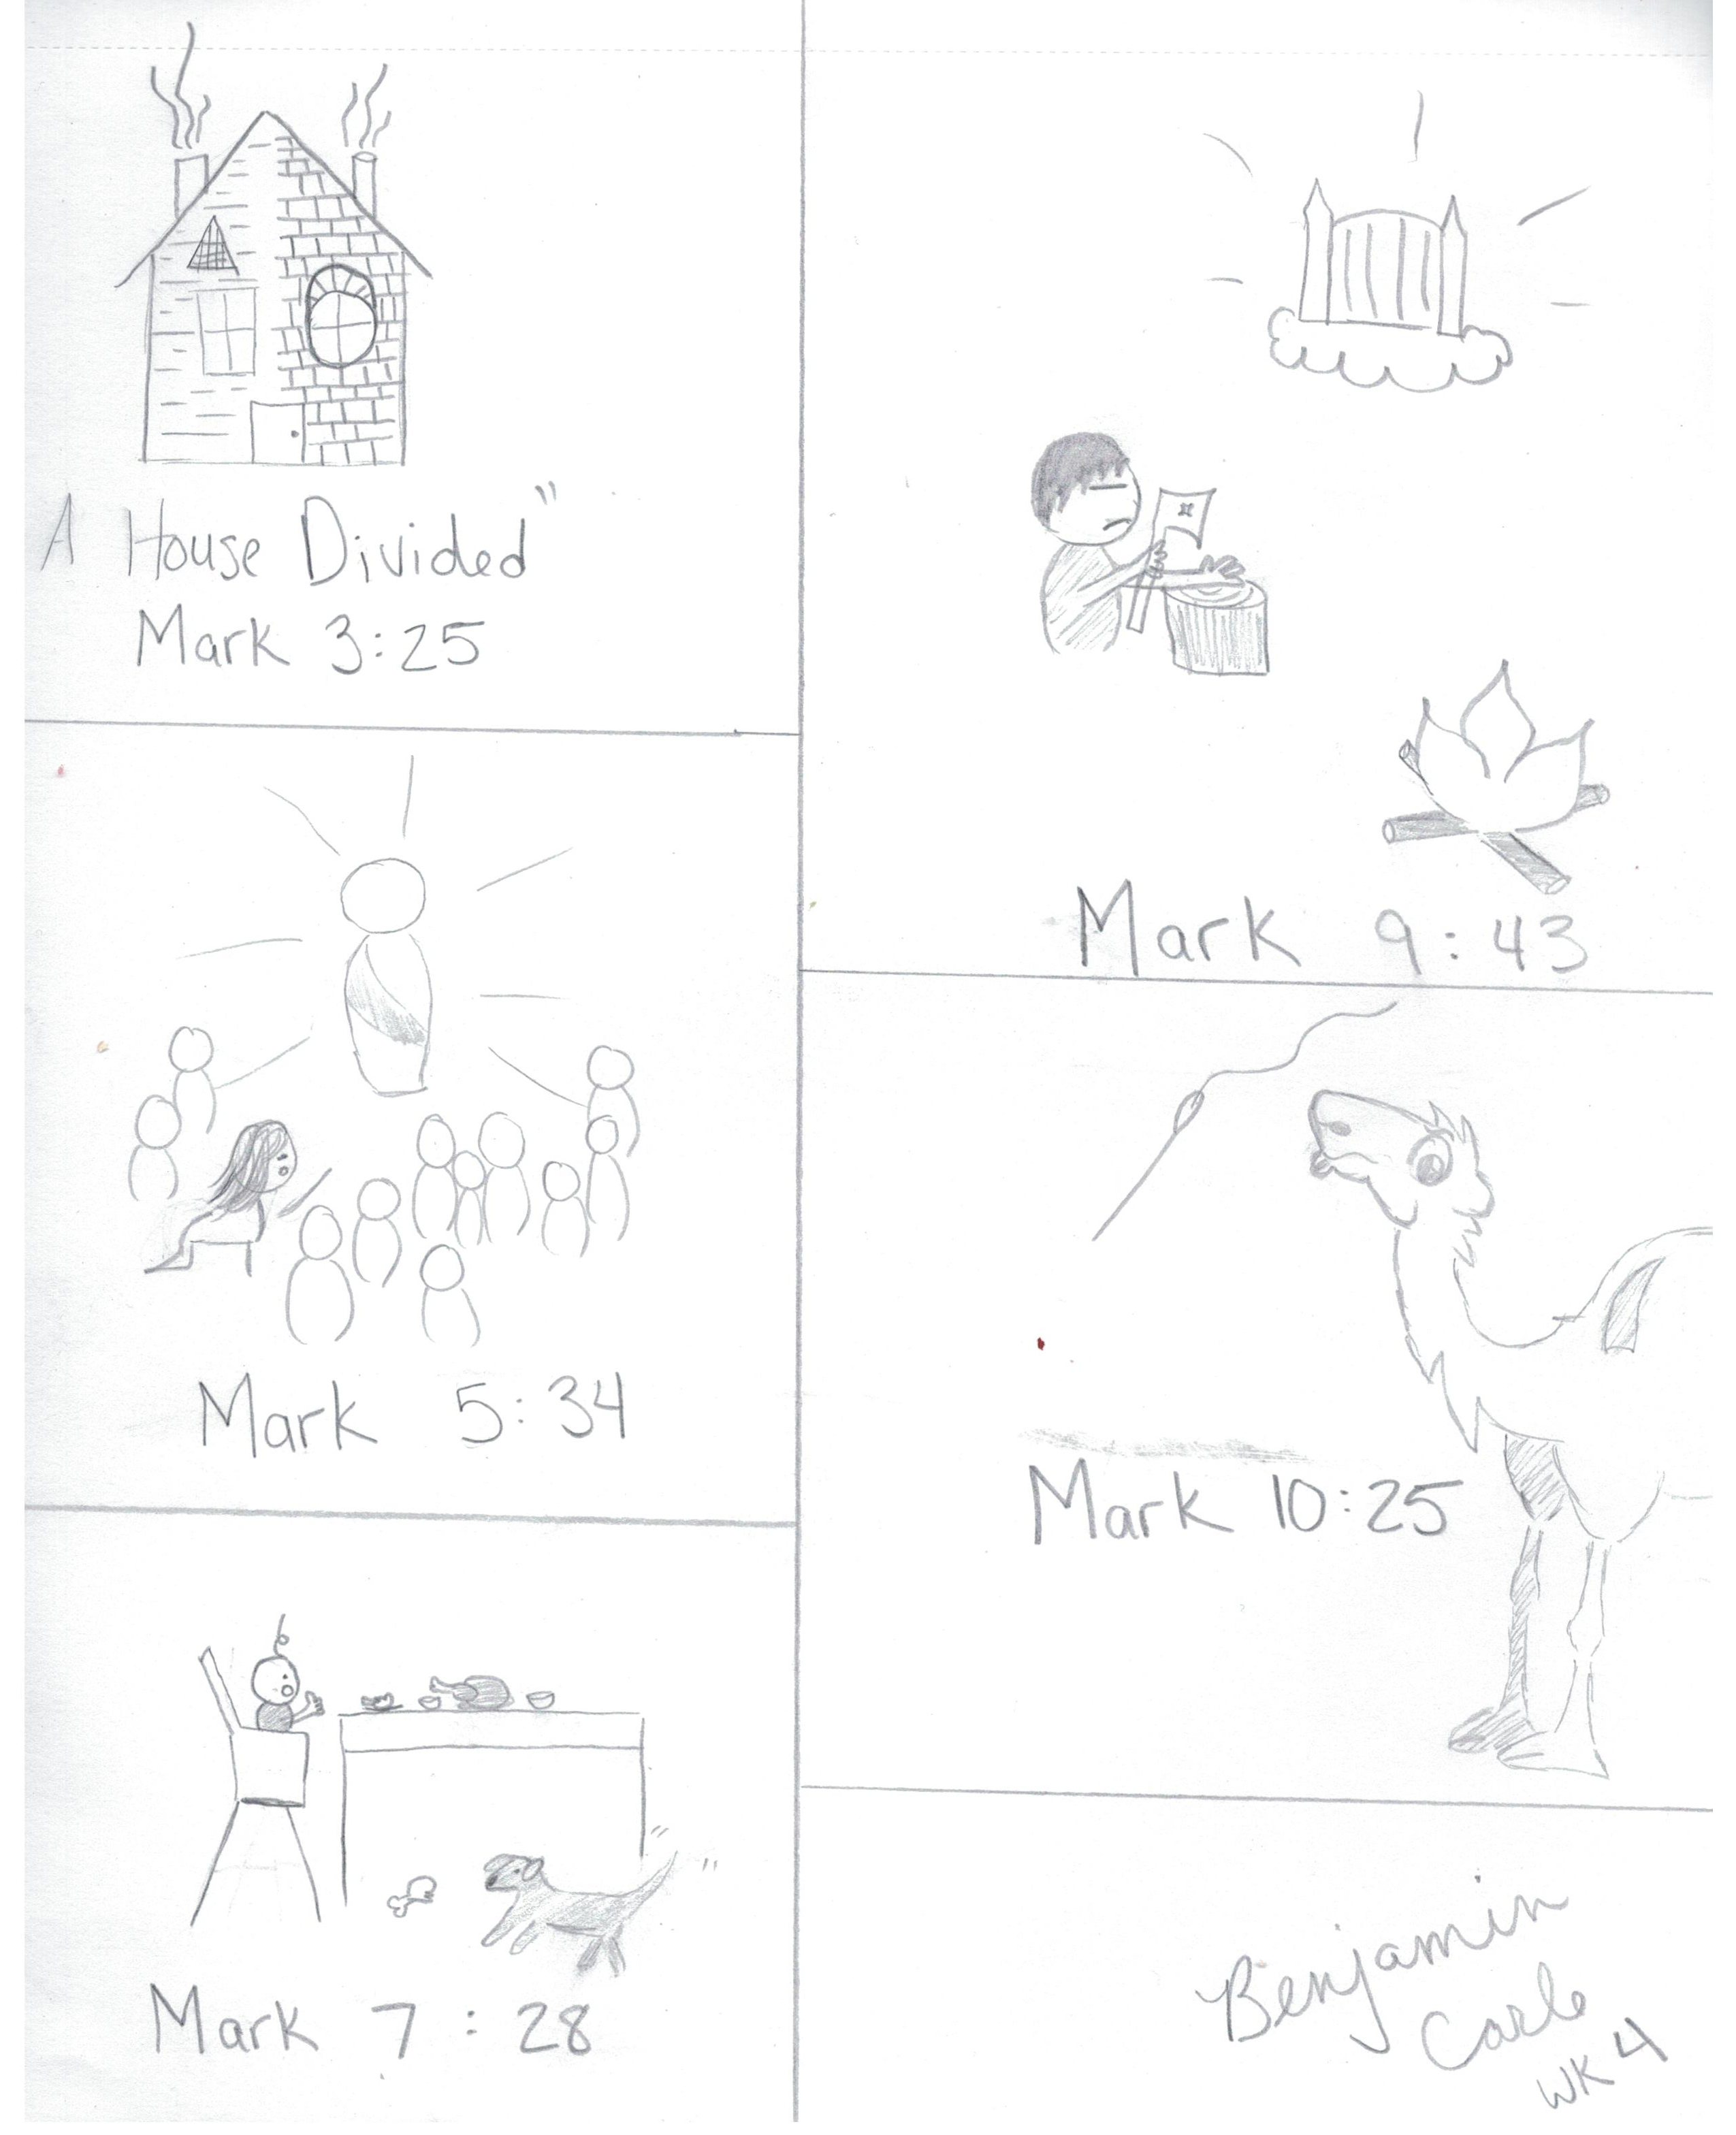 A House Divided"
Mark 3:25
Mark 5:34
Mark 7:28
Mark 9:43
Mark 10:25
Benjamin
Carle
WK 4